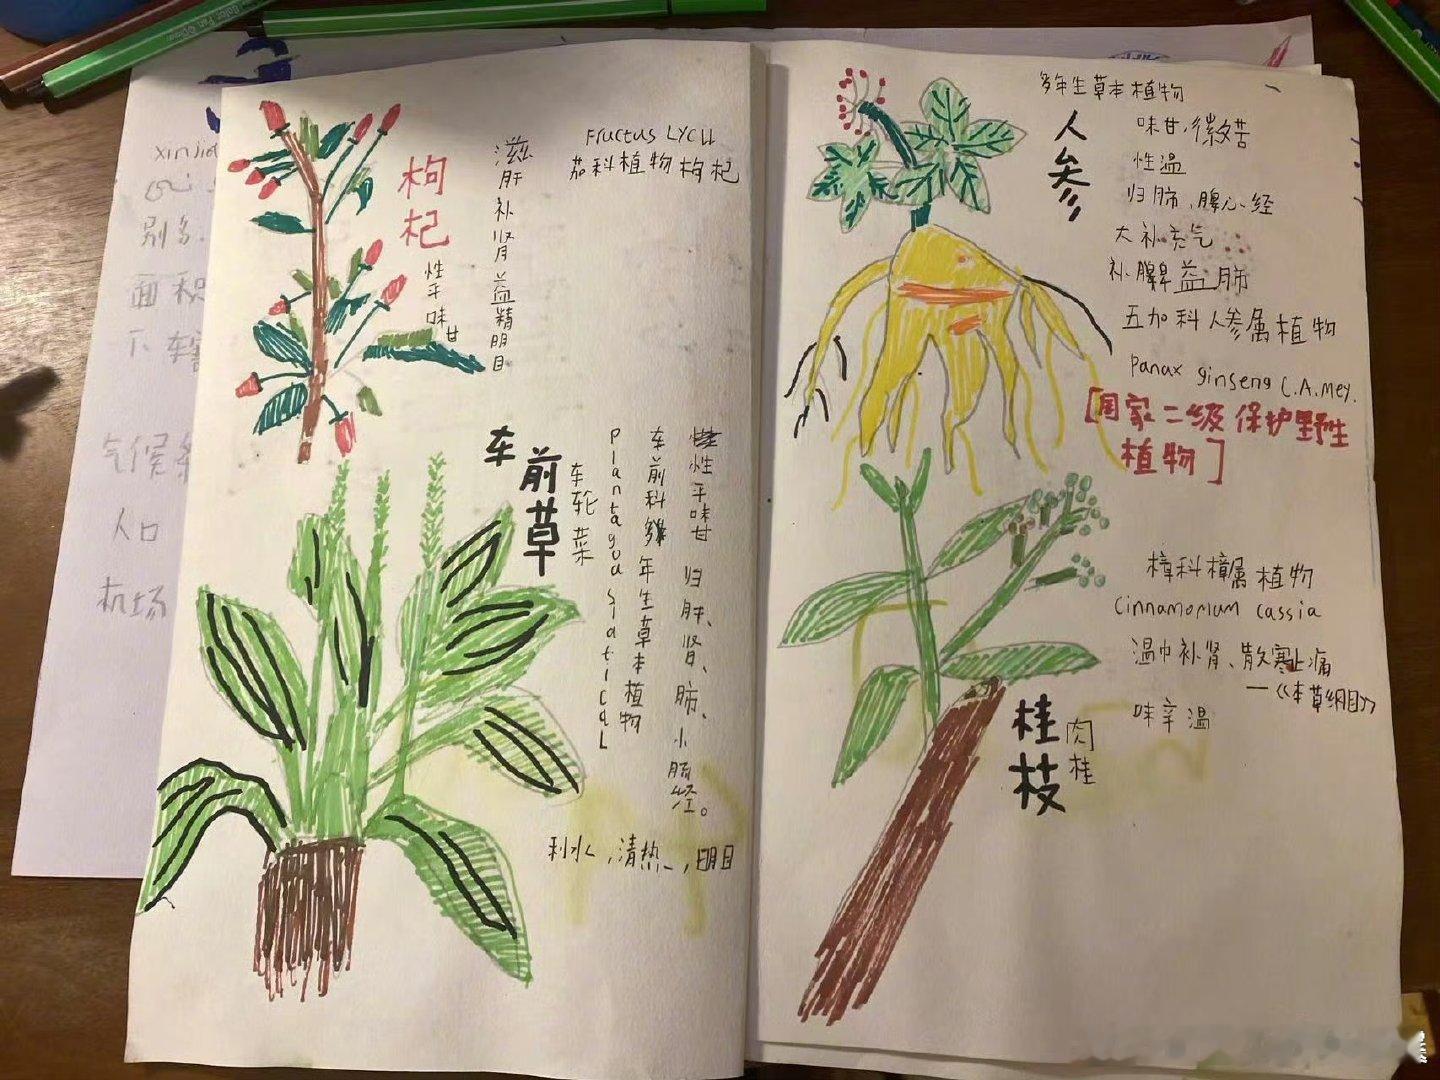 枸杞
性平味甘
滋肝补肾益精明目
Fructus LYCII
茄科植物枸杞
车前草
车轮菜
Plantagoa Siatical
车前科多年生草本植物
性平味甘 归肝、肾、肺、小肠经。
利水,清热,明目
多年生草本植物
人参
味甘、微苦
性温
归肺、脾心经
大补元气
补脾益肺
五加科人参属植物
Panax ginseng C.A.Mey.
[国家二级保护野生
植物]
樟科樟属植物
Cinnamomum cassia
温中补肾、散寒止痛
—《本草纲目》
味辛温
桂枝
肉桂
xinjia
别名
面积
下辖
气候
人口
机场